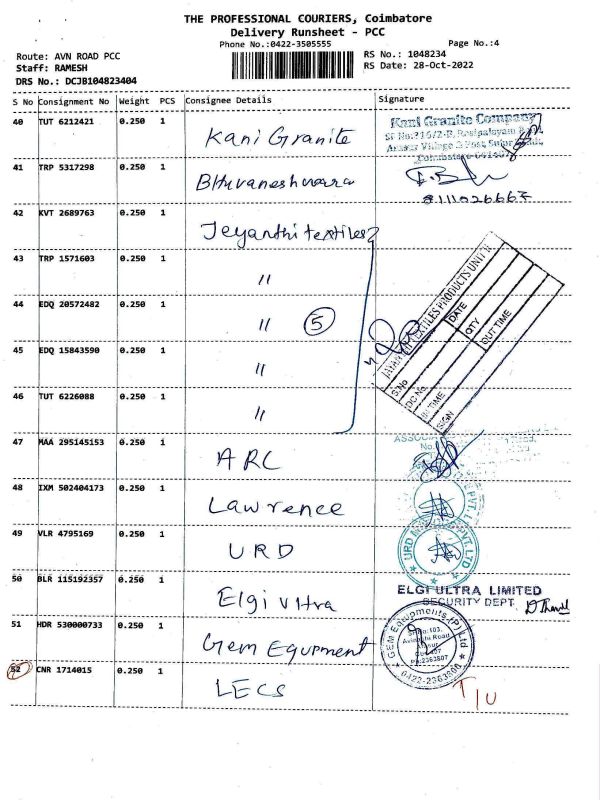 THE PROFESSIONAL COURIERS, Coimbatore
Delivery Runsheet - PCC
Phone No.:0422-3505555
Page No.:4
Route: AVN ROAD PCC
Staff: RAMESH
DRS No.: DCJB104823404
RS No.: 1048234
RS Date: 28-Oct-2022
S No Consignment No Weight PCS Consignee Details Signature
40 TUT 6212421 0.250 1 Kani Granite
Kani Granite Company
41 TRP 5317298 0.250 1 Bhuvaneshwara
8111026667
42 KVT 2689763 0.250 1 Jeyanthi textiles
43 TRP 1571603 0.250 1 "
44 EDQ 20572482 0.250 1 " 5
45 EDQ 15843590 0.250 1 "
46 TUT 6226088 0.250 1 "
TEXTILES PRODUCTS UNIT II
S.No DATE
DC No. QTY
IN TIME OUT TIME
SIGN
47 MAA 295145153 0.250 1 ARC
ASSOCIA
48 IXM 502404173 0.250 1 Lawrence
49 VLR 4795169 0.250 1 URD
URD PVT. LTD
50 BLR 115192357 0.250 1 Elgi Ultra
ELGI ULTRA LIMITED
SECURITY DEPT.
51 HDR 530000733 0.250 1 Gem Equpment
GEM Equipments (P) Ltd
0422-2363800
52 CNR 1714015 0.250 1 LECS